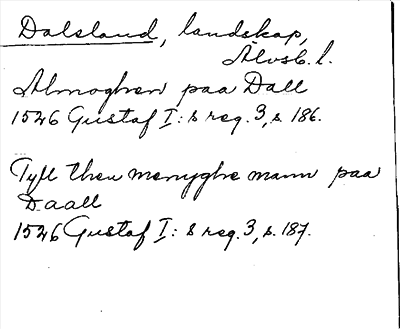 Dalsland, landskap,
Älvsb. l.
Almoghen paa Dall
1526 Gustaf I: s reg. 3, s. 186.
Tyll then menyghe mann paa
Daall
1526 Gustaf I: s reg. 3, s. 187.